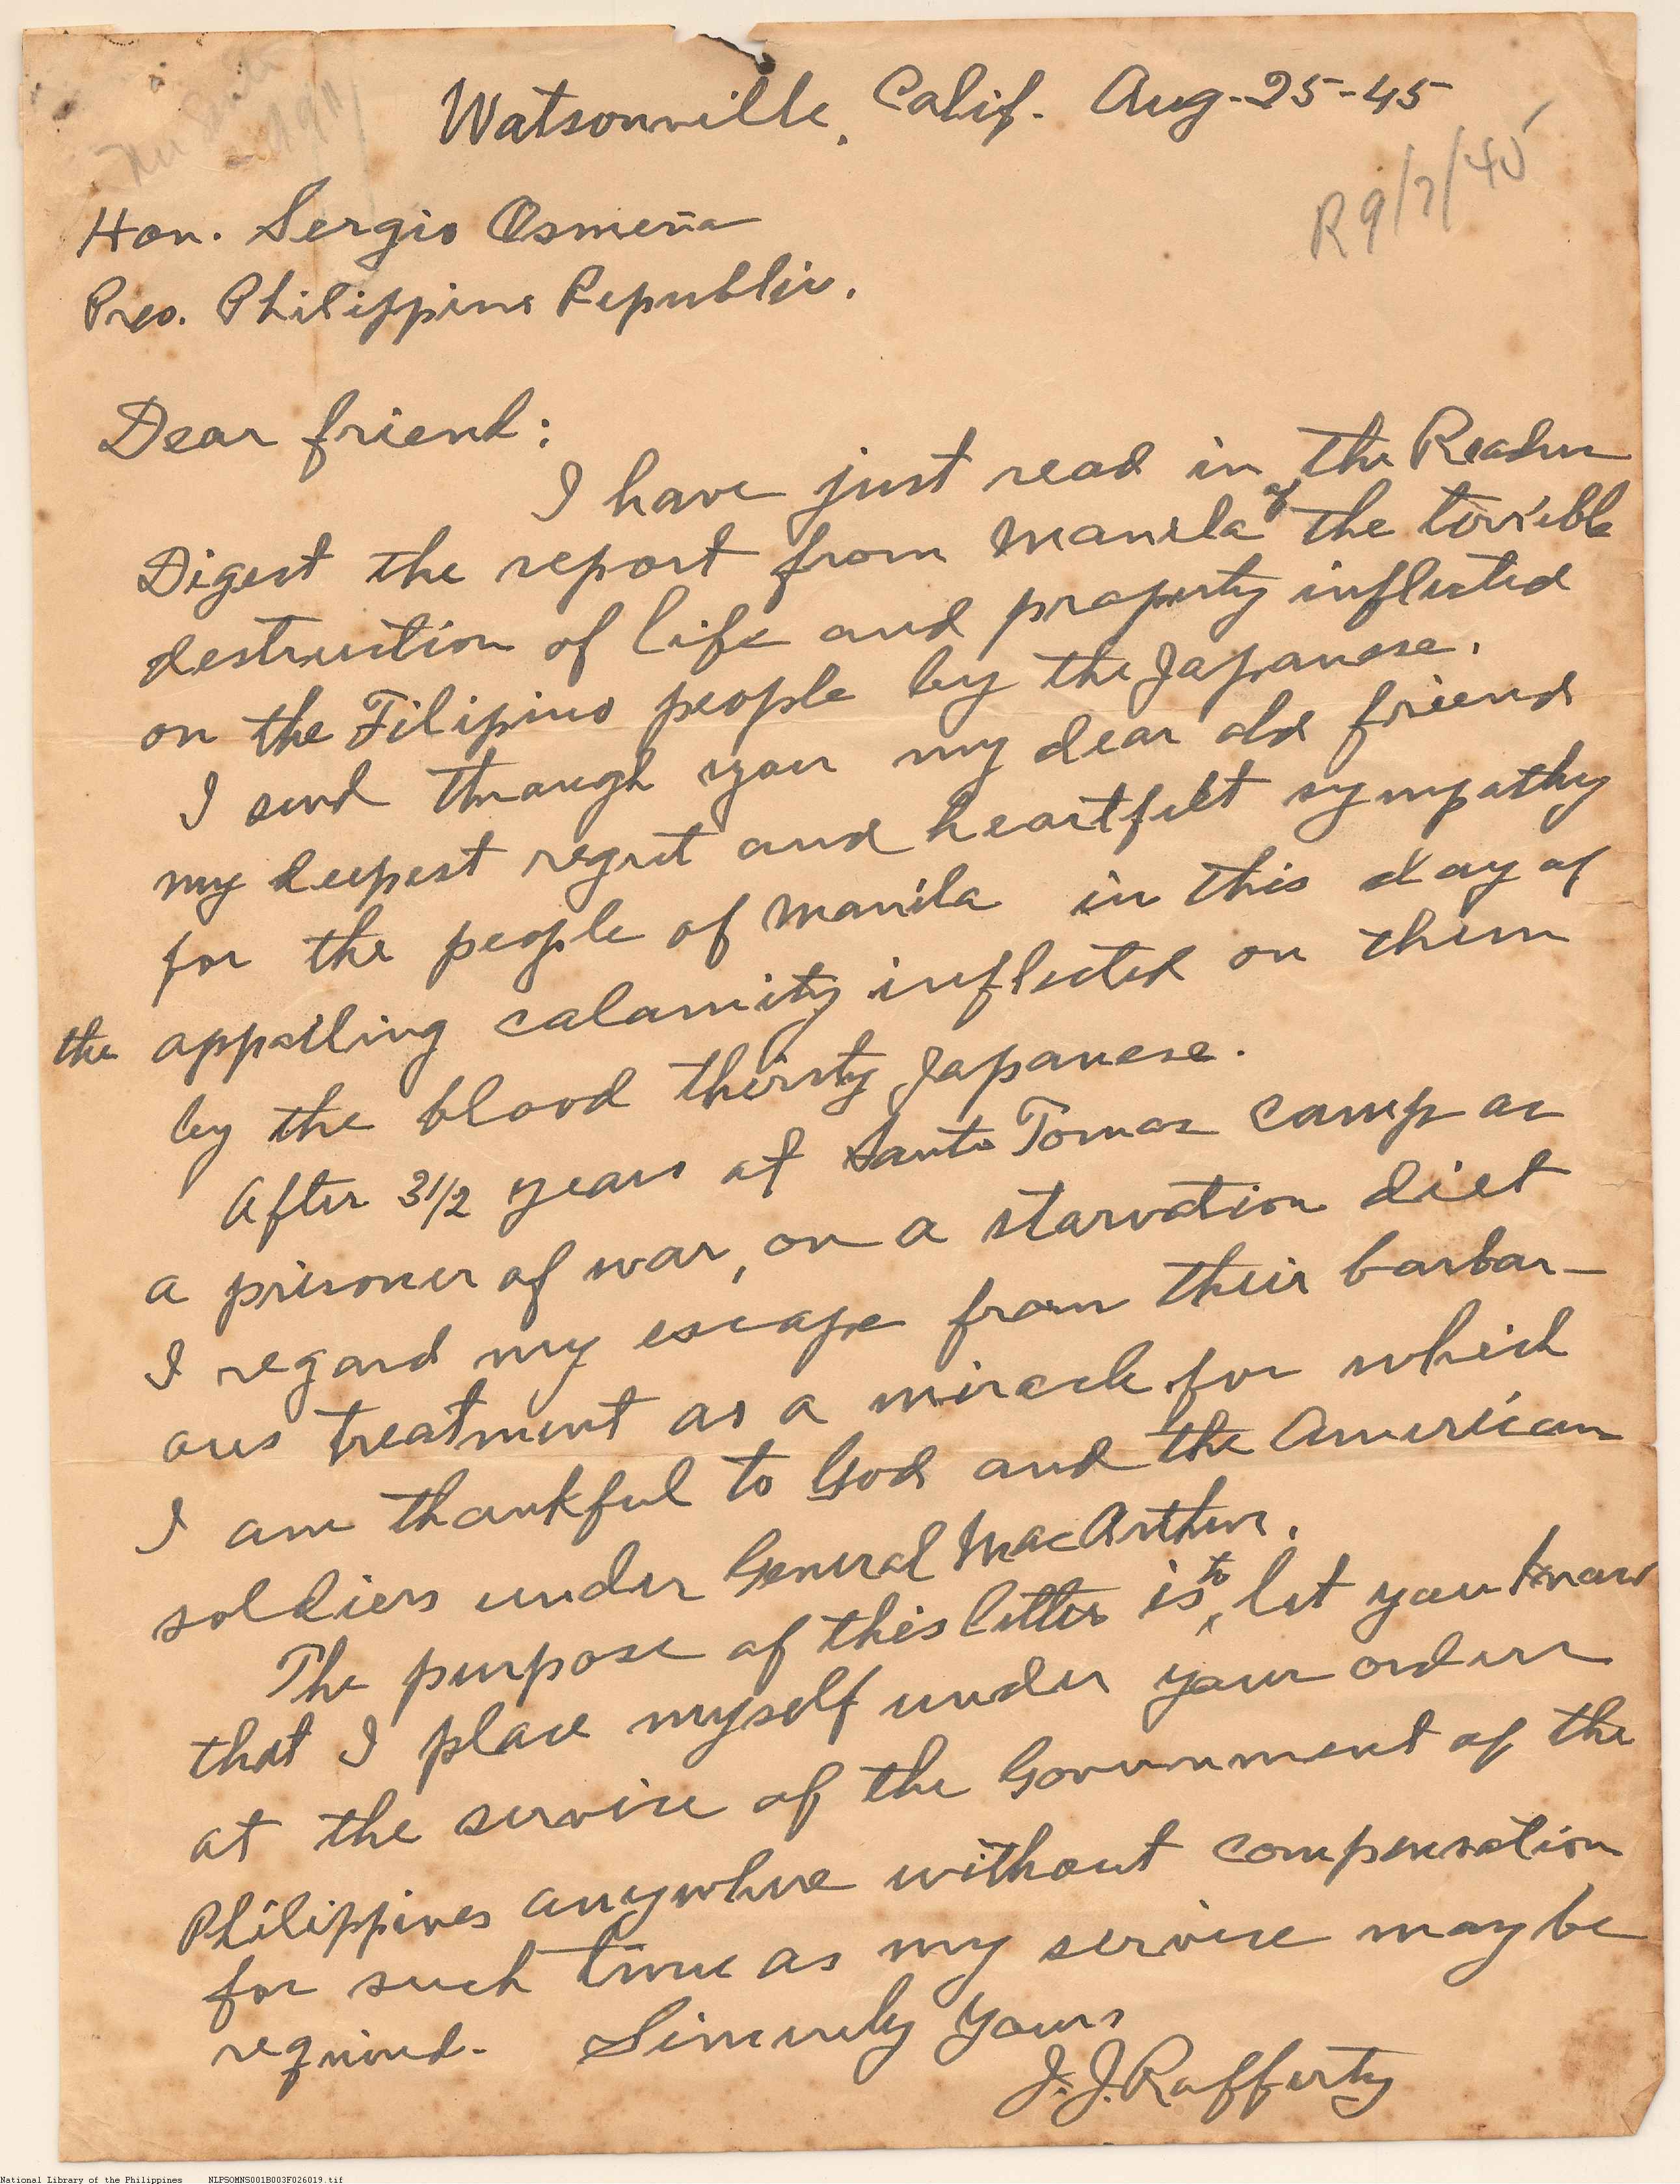 Watsonville, Calif. Aug-25-45
R 9/7/45
Hon. Sergio Osmeña
Pres. Philippine Republic.
Dear friend:
I have just read in the Reader
Digest the report from Manila of the terrible
destruction of life and property inflicted
on the Filipino people by the Japanese.
I send through you my dear old friend
my deepest regret and heartfelt sympathy
for the people of Manila in this day of
the appalling calamity inflicted on them
by the blood thirsty Japanese.
After 3 1/2 years at Santo Tomas camp as
a prisoner of war, on a starvation diet
I regard my escape from their barbar-
ous treatment as a miracle for which
I am thankful to God and the American
soldiers under General MacArthur.
The purpose of this letter is to let you know
that I place myself under your orders
at the service of the Government of the
Philippines anywhere without compensation
for such time as my service may be
required. Sincerely Yours
J. J. Rafferty
National Library of the Philippines NLPSOMNS001B003F026019.tif